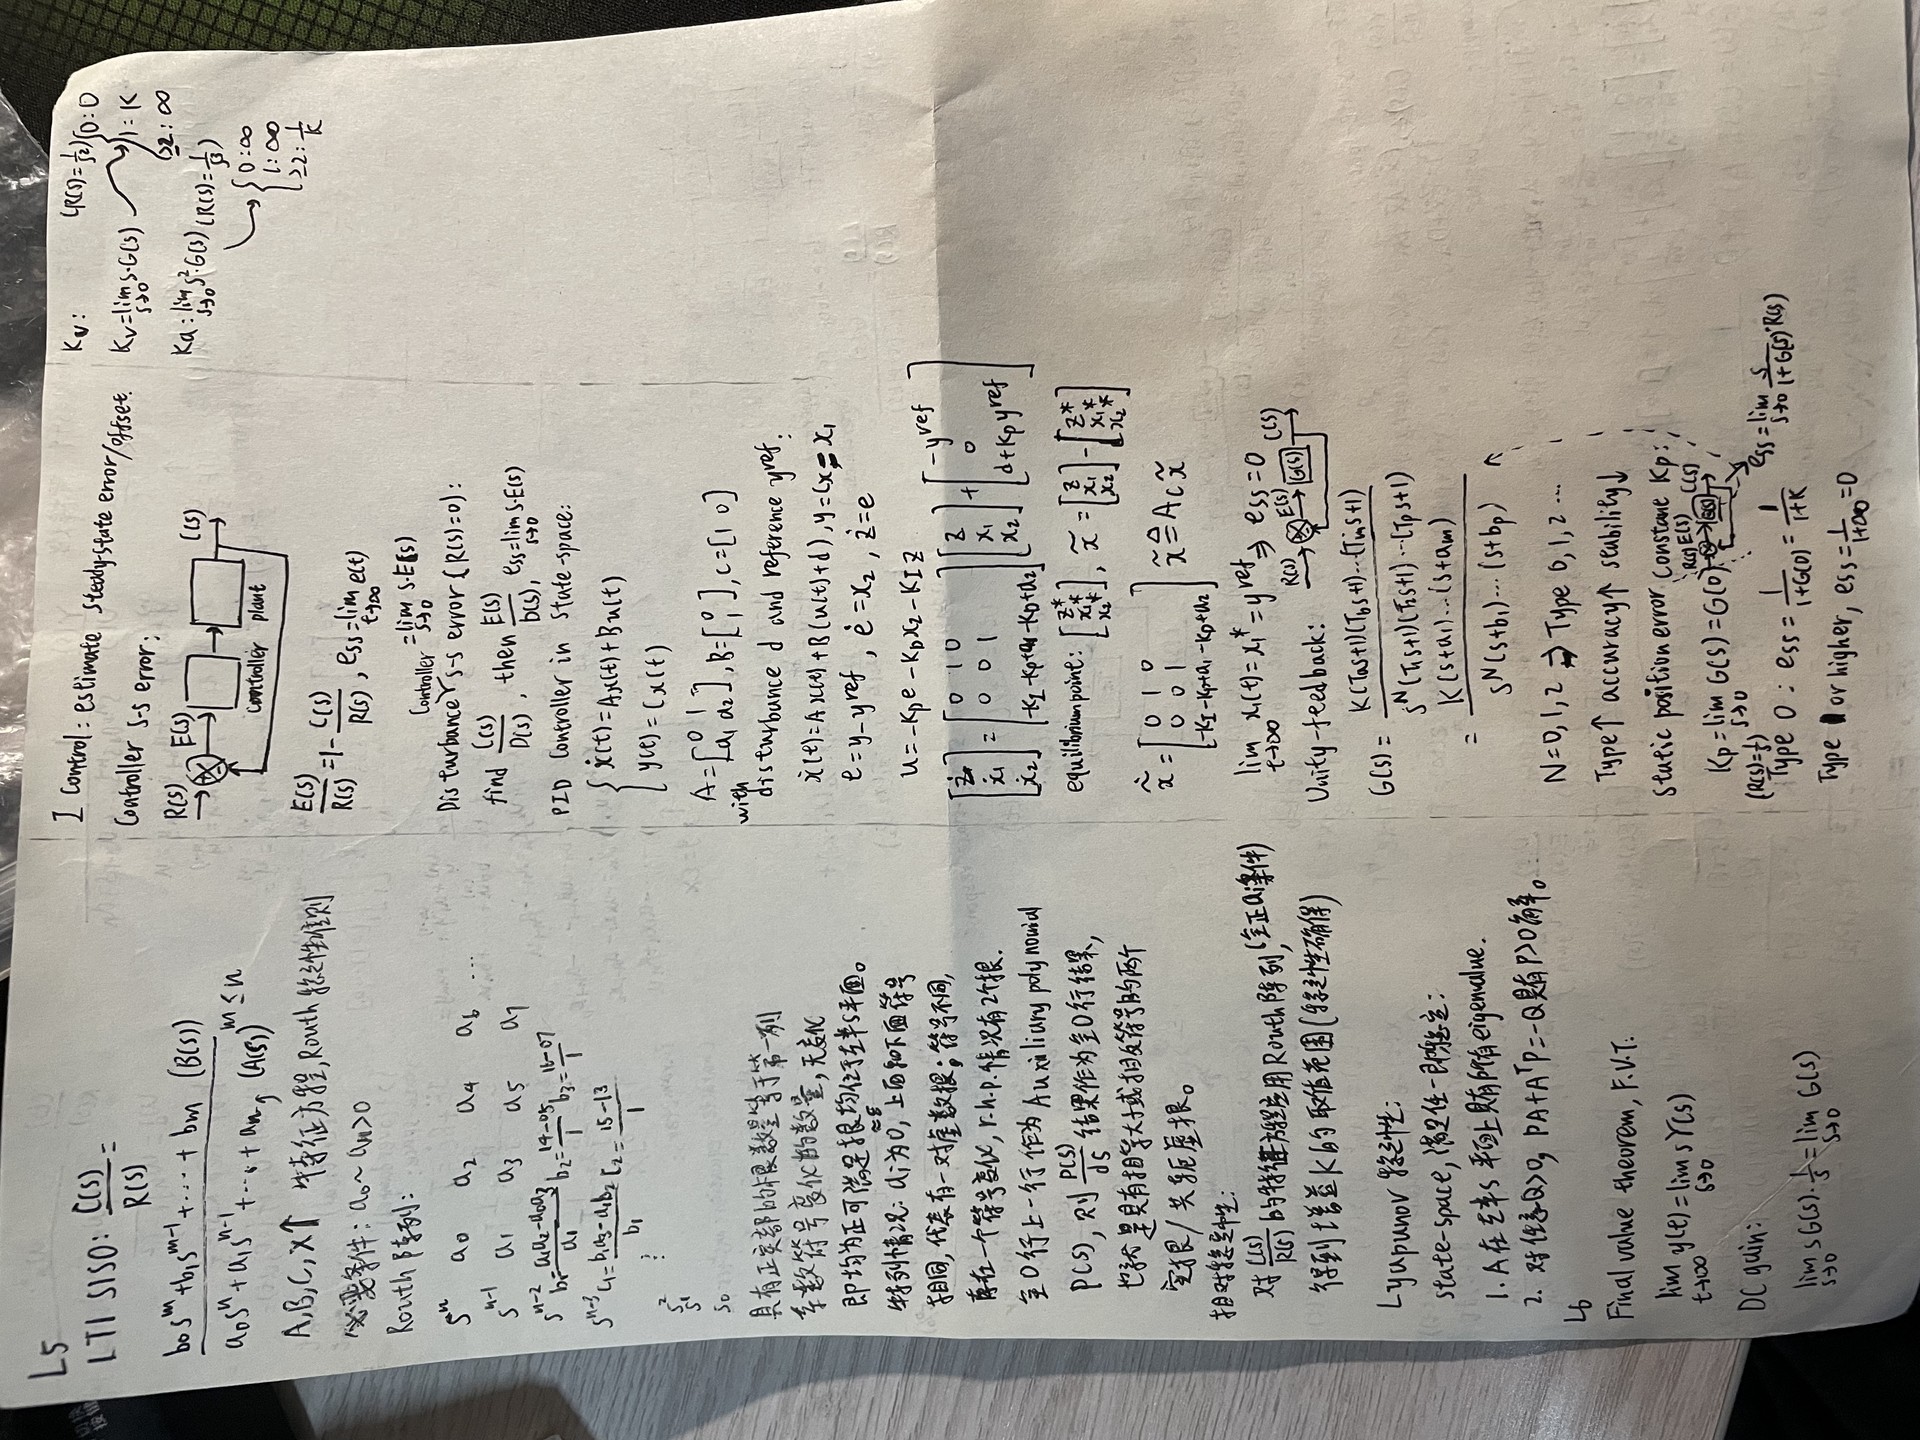 L5
LTI SISO: C(s)/R(s) =
b0s^m+b1s^m-1+···+bm (B(s))
a0s^n+a1s^n-1+···+an, (A(s)) m≤n
A,B,C,x↑ 特征方程,Routh稳定性准则
必要条件: a0~an>0
Routh阵列:
s^n a0 a2 a4 a6 ···
s^n-1 a1 a3 a5 a7
s^n-2 b1=(a1a2-a0a3)/a1 b2=(14-05)/1 b3=(16-07)/1
s^n-3 c1=(b1a3-a1b2)/b1 c2=(15-13)/1
⋮
s^2
s^1
s0
具有正实部的根数量等于第一列
系数符号变化的数量,无变化
即均为正可满足根均位于左半s平面。
特列情况: ai为0, ≈ε 上面和下面符号
相同,代表有一对虚数根;符号不同,
存在一个符号变化, r.h.p.情况有2个根.
全0行上一行作为Auxiliary polynomial
P(s), 则 P(s)/ds 结果作为全0行结果,
也就是具有相等大小或相反符号的两个
实根/共轭虚根。
相对稳定性:
对 C(s)/R(s) 的特征方程应用Routh阵列,(全正ai条件)
得到增益K的取值范围(稳定性确保)
Lyapunov 稳定性:
state-space,满足任一即稳定:
1. A在左半s平面上具有所有eigenvalue.
2. 对任意Q>0, PA+A^TP=-Q具有P>0解。
L6
Final value theorem, F.V.T:
lim t→∞ y(t)=lim s→0 sY(s)
DC gain:
lim s→0 sG(s)·1/s=lim s→0 G(s)
I Control: estimate steady-state error/offset.
Controller s-s error:
R(s) E(s) C(s)
controller plant
E(s)/R(s)=1-C(s)/R(s), ess=lim t→∞ e(t)
=lim s→0 s·E(s)
Controller
Disturbance s-s error (R(s)=0):
find C(s)/D(s), then E(s)/D(s), ess=lim s→0 s·E(s)
PID Controller in state-space:
{ ẋ(t)=Ax(t)+Bu(t)
y(t)=Cx(t)
A=[0 1; a1 a2], B=[0; 1], C=[1 0]
with
disturbance d and reference y^ref.
ẋ(t)=Ax(t)+B(u(t)+d), y=Cx=x1
e=y-y^ref, ė=x2, ż=e
u=-KPe-KDx2-KIz
[ż; ẋ1; ẋ2]=[0 1 0; 0 0 1; -KI -KP+a1 -KD+a2][z; x1; x2]+[-y^ref; 0; d+KPy^ref]
equilibrium point: [z*; x1*; x2*], x̃=[z; x1; x2]-[z*; x1*; x2*]
x̃̇=[0 1 0; 0 0 1; -KI -KP+a1 -KD+a2] x̃≜Acx̃
lim t→∞ x1(t)=x1*=y^ref ⇒ ess=0
R(s) E(s) G(s) C(s)
Unity-feedback:
G(s)= K(Tas+1)(Tbs+1)···(Tms+1) / s^N(T1s+1)(T2s+1)···(Tps+1)
= K(s+a1)···(s+am) / s^N(s+b1)···(s+bp)
N=0,1,2 ⇒ Type 0,1,2 ···
Type↑ accuracy↑ stability↓
static position error constant Kp:
R(s) E(s) G(s) C(s)
Kp=lim s→0 G(s)=G(0)
(R(s)=1/s)
ess=lim s→0 s/(1+G(s))·R(s)
Type 0: ess=1/(1+G(0))=1/(1+K)
Type 1 or higher, ess=1/(1+∞)=0
Kv: (R(s)=1/s^2) {0:0
Kv=lim s→0 s·G(s) 1:K
≥2:∞
Ka: lim s→0 s^2·G(s) (R(s)=1/s^3)
{0:∞
1:∞
≥2:1/K